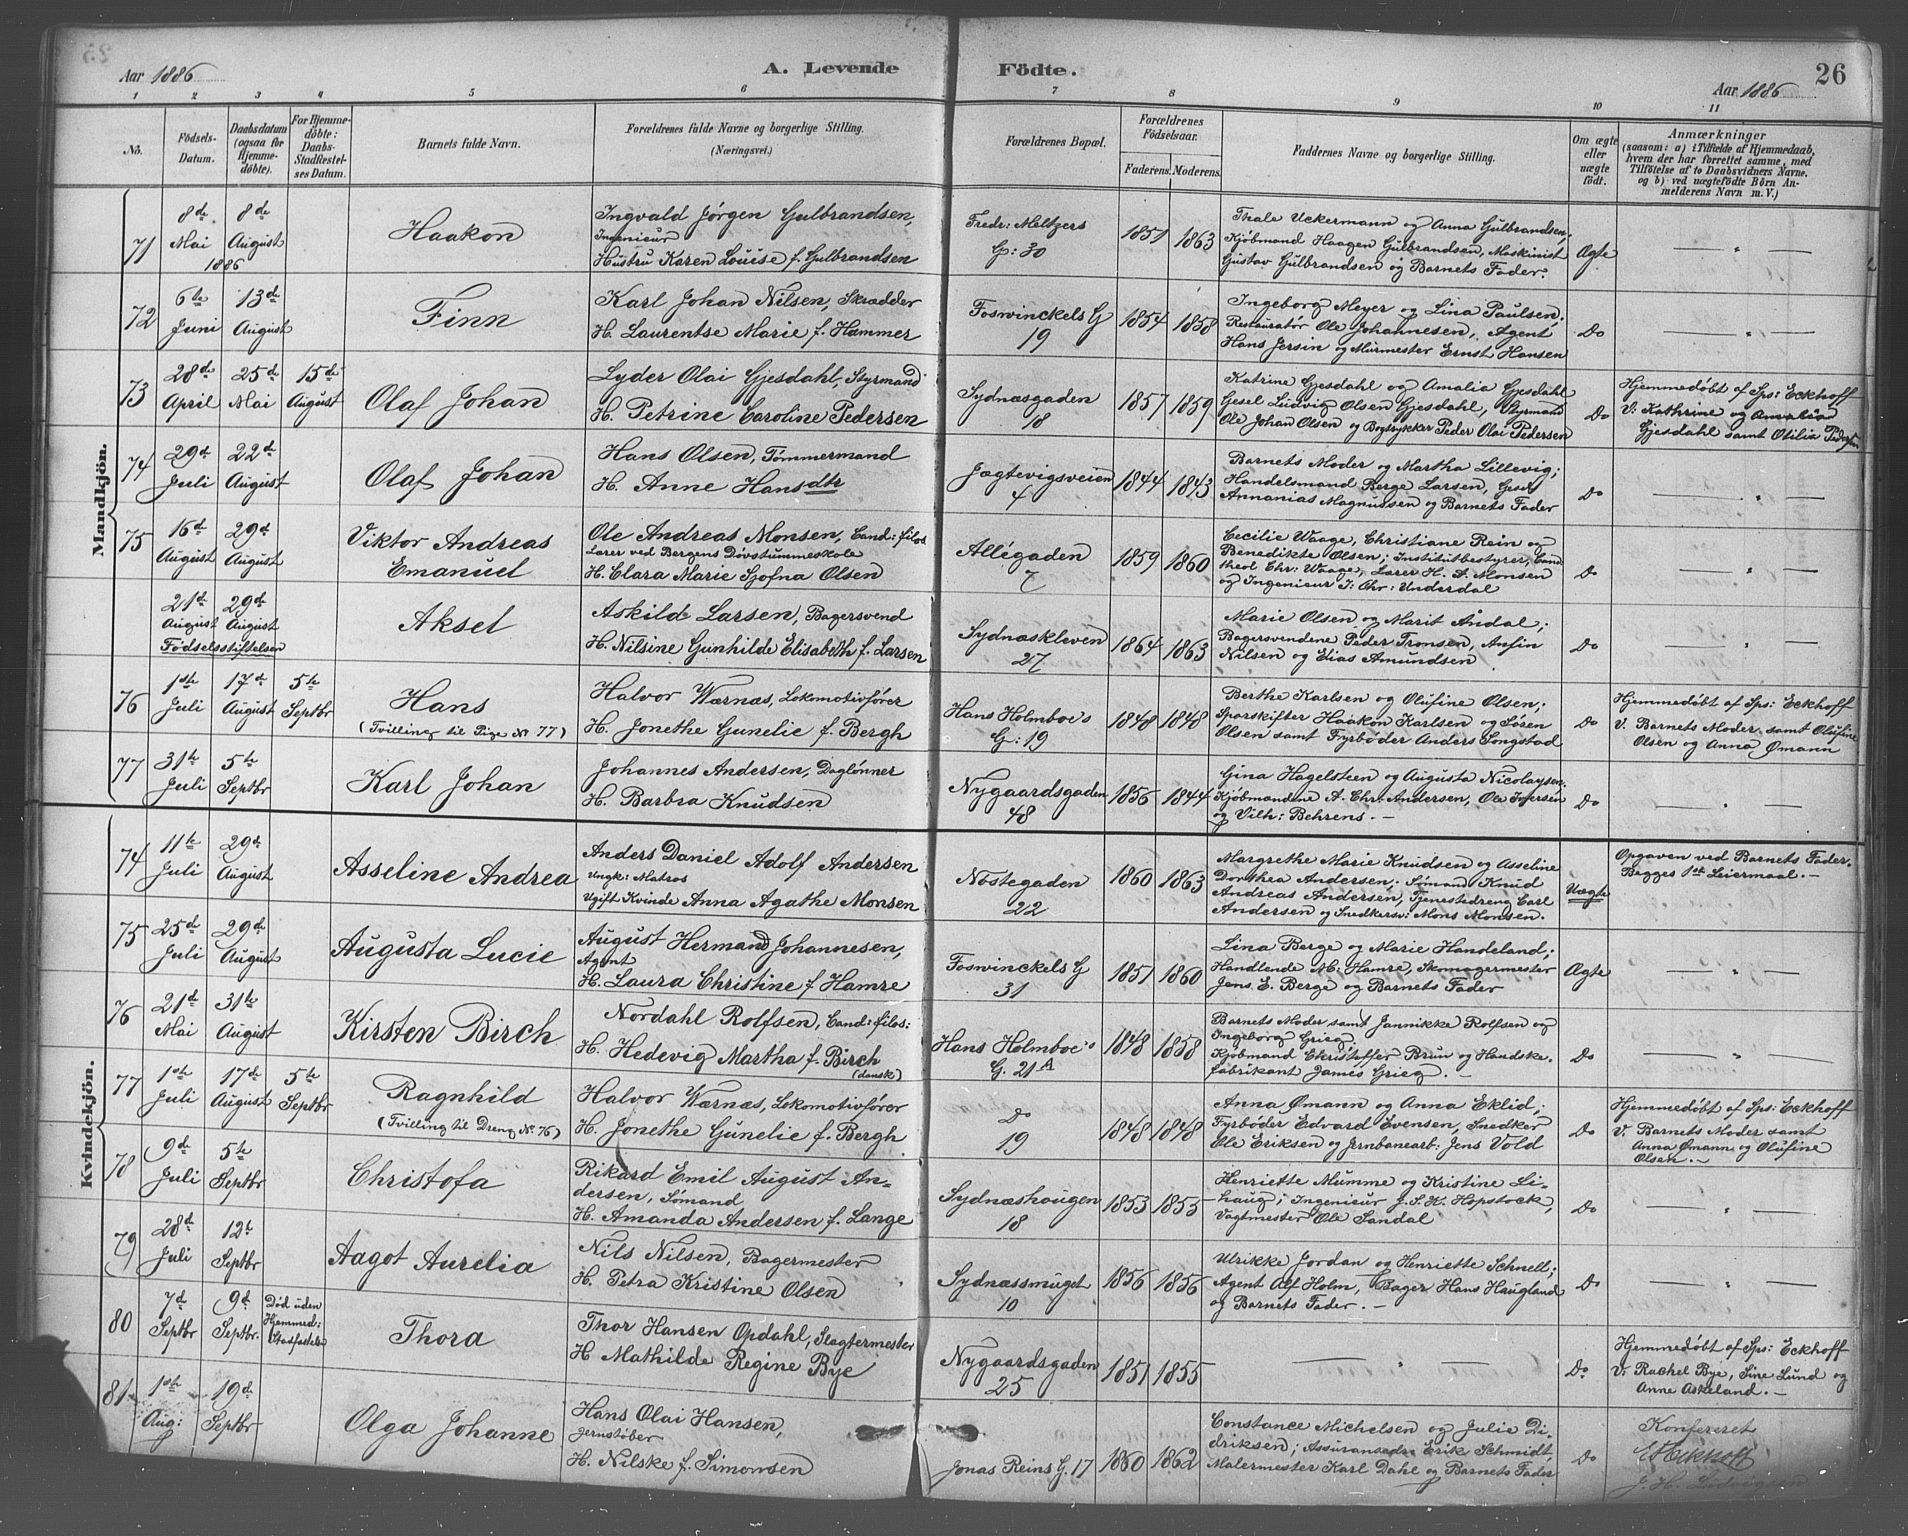 Aar 1886
A. Levende Födte.
Aar 1886
26
1 2 3 4 5 6 7 8 9 10 11
No.
Födsels-Datum.
Daabsdatum (ogsaa for Hjemmedöbte).
For Hjemmedöbte: Daabs-Stadfestelses Datum.
Barnets fulde Navn.
Forældrenes fulde Navne og borgerlige Stilling. (Næringsvei.)
Forældrenes Bopæl.
Forældrenes Födselsaar.
Faderens. Moderens.
Faddernes Navne og borgerlige Stilling.
Om ægte eller uægte født.
Anmærkninger
(saasom: a) i Tilfælde af Hjemmedaab, hvem der har forrettet samme, med Tilföielse af to Daabsvidners Navne. og b) ved uægtefödte Börn Anmelderens Navn m. V.)
Mandkjön.
71
8de Mai 1886
8de August
Haakon
Ingvald Jørgen Gulbrandsen,
Ingenieur
Hustru Karen Louise f. Gulbrandsen
Fredr: Meltzers
G: 30
1851 1863
Thale Uckermann og Anna Gulbrandsen;
Kjöbmand Haagen Gulbrandsen, Maskinist
Gustav Gulbrandsen og Barnets Fader.
Ægte
72
6te Juni
13de August
Finn
Karl Johan Nilsen, Skrædder
H. Laurentse Marie f. Hammer
Foswinckels G
19
1854 1858
Ingeborg Meyer og Lina Paulsen;
Restauratør Ole Johannesen, Agent
Hans Jersin og Murmester Ernst Hansen
Do
73
28de April
25de Mai
15de August
Olaf Johan
Lyder Olai Gjesdahl, Styrmand
H. Petrine Caroline Pedersen
Sydnæsgaden
18
1857 1859
Katrine Gjesdahl og Amalia Gjesdahl
Gesel Ludvig Olsen Gjesdahl, Styrmand
Ole Johan Olsen og Bogtrykker Peder Olai Pedersen
Do
Hjemmedøbt af Sps: Eckhoff
V: Kathrine og Amalia
Gjesdahl samt Otilia Pedersen
74
29d Juli
22de August
Olaf Johan
Hans Olsen, Tømmermand
H. Anne Hansdtr
Jægtevigsveien
4
1844 1843
Barnets Moder og Martha Lillevig;
Handelsmand Berge Larsen, Gesel
Annanias Magnussen og Barnets Fader
Do
75
16de August
29d August
Viktor Andreas
Emanuel
Ole Andreas Monsen, Cand: filos
Lærer ved Bergens Døvstummeskole
H. Clara Marie Sjofna Olsen
Allégaden
7
1859 1860
Cecilie Waage, Christiane Rein og
Benedikte Olsen; Institutbestyrer, Cand
theol Chr: Waage, Lærer H. A. Monsen
og Ingenieur J: Chr: Underdal
Do
21d August
29d August
Födselsstiftelsen
Aksel
Askilde Larsen, Bagersvend
H. Nilsine Gunhilde Elisabeth f. Larsen
Sydnæskleven
27
1864 1863
Marie Olsen og Marit Andal;
Bagersvendene Peder Tronsen, Anfin
Nilsen og Elias Amundsen
Do
76
1ste Juli
17d August
5te Septbr
Hans
(Tvilling til Pige No 77)
Halvor Wærnæs, Lokomotivfører
H. Jonethe Gunelie f. Bergh
Hans Holmboe's
G: 19
1848 1848
Berthe Karlsen og Olufine Olsen;
Sporskifter Haakon Karlsen og Søren
Olsen samt Fyrbøder Anders Songstad
Do
Hjemmedøbt af Sps: Eckhoff
V. Barnets Moder samt Olufine
Olsen og Anna Ømann
77
31te Juli
5te Septbr
Karl Johan
Johannes Andersen, Daglønner
H. Barbra Knudsen
Nygaardsgaden
48
1856 1844
Gina Hagelsteen og Augusta Nicolaysen.
Kjöbmandene A. Chr: Andersen, Ole Iversen
og Vilh: Behrens. —
Do
Kvindekjön.
74
11te Juli
29d August
Asseline Andrea
Anders Daniel Adolf Andersen
Ungk: Matros
Ugift Kvinde Anna Agathe Monsen
Nøstegaden
22
1860 1863
Margrethe Marie Knudsen og Asseline
Dorthea Andersen; Sømand Knud
Andreas Andersen, Tjenestedreng Carl
Andersen og Snedkersv: Mons Monsen.
Uægte
Opgaven ved Barnets Fader.
Begges 1ste Leiermaal. —
75
25d Juli
29d August
Augusta Lucie
August Herman Johannesen,
Agent
H. Laura Christine f. Hamre
Foswinckels G
31
1851 1860
Lina Berge og Marie Handeland;
Handlende M: Hamre, Skomagermester
Jens E. Berge og Barnets Fader
Ægte
76
21d Mai
31te August
Kirsten Birch
Nordahl Rolfsen, Cand: filos:
H. Hedevig Martha f. Birch
(dansk)
Hans Holmboe's
G. 21 A
1848 1858
Barnets Moder samt Jannikke Rolfsen og
Ingeborg Grieg
Kjöbmand Christoffer Brun og Handske-
fabrikant James Grieg. —
Do
77
1ste Juli
17de August
5te Septbr
Ragnhild
(Tvilling til Dreng No. 76)
Halvor Wærnæs, Lokomotivfører
H. Jonethe Gunelie f. Bergh
Do
19
1848 1848
Anna Ømann og Anna Eklid;
Fyrbøder Edvard Evensen, Snedker
Ole Eriksen og Jernbanearb: Jens Vold
Do
Hjemmedøbt af Sps: Eckhoff
V. Barnets Moder samt
Anna Ømann og Olufine
Olsen. —
78
9d Juli
5te Septbr
Christofa
Rikard Emil August An-
dersen, Sømand
H. Amanda Andersen f. Lange
Sydnæshaugen
18
1853 1855
Henriette Mumme og Kristine Li-
haug; Ingenieur J. S. K. Hopstock,
Vagtmester Ole Sandal
Do
79
28d Juli
12te Septbr
Aagot Aurelia
Nils Nilsen, Bagermester
H. Petra Kristine Olsen
Sydnæssmuget
10
1856 1856
Ulrikke Jordan og Henriette Schnell;
Agent Alf Holm, Bager Hans Haugland
og Barnets Fader. —
Do
80
7d Septbr
9d Septbr.
Død uden Hjemmed: Stadfæstelse
Thora
Thor Hansen Opdahl, Slagtermester
H Mathilde Regine Bye
Nygaardsgaden
25
1851 1855
Do
Hjemmedøbt af Sps: Eckhoff
V: Rachel Bye, Sine Lund og
Anne Askeland. —
81
1ste Aug:
19d Septbr
Olga Johanne
Hans Olai Hansen,
Jernstøber
H. Nilske f. Simonsen
Jonas Reins G. 17
1860 1862
Constance Michelsen og Julie Di-
driksen; Assuransedr. Erik Schmidt,
Malermester Karl Dahl og Barnets Fader
Do
Konfereret
E Eckhoff
J. H. Ludvigsen